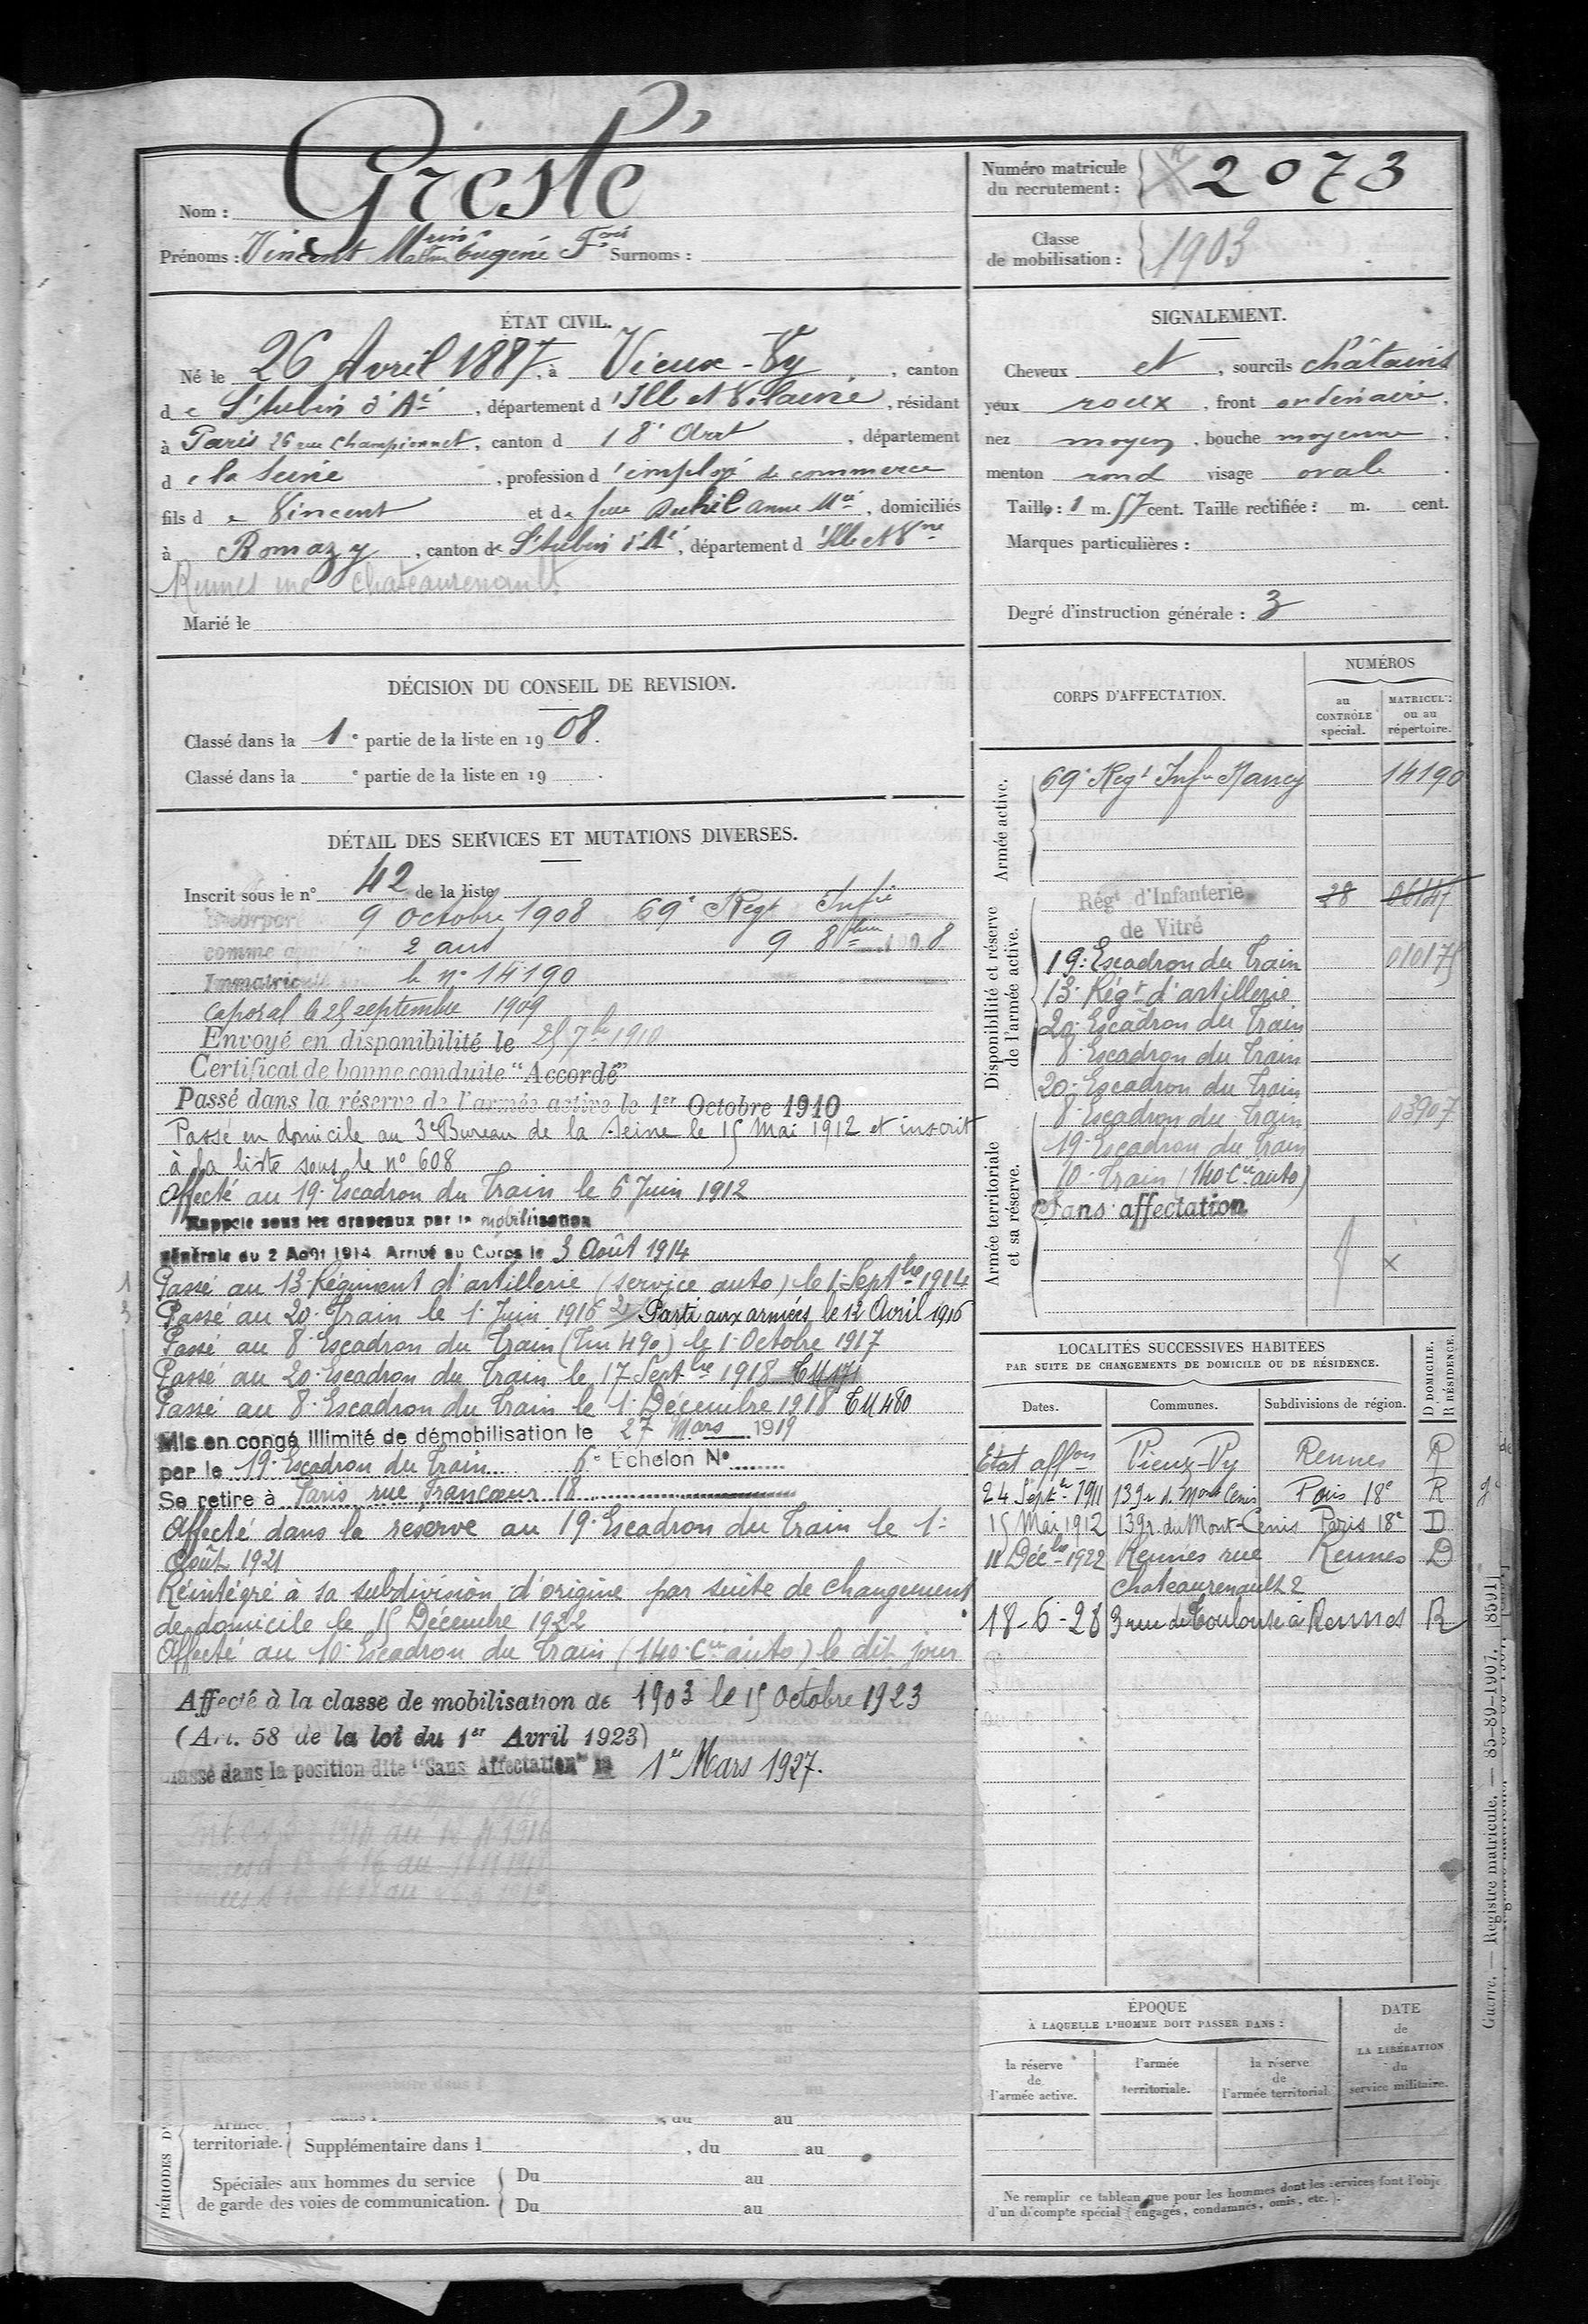 Nom : Gresté
Numéro matricule du recrutement : 2073
Prénoms : Vincent Eugène Surnoms :
Classe de mobilisation : 1903
ÉTAT CIVIL.
Né le 26 Avril 1887, à Vieux-Vy, canton
de St Aubin d'Aé, département d'Ille et Vilaine, résidant
à Paris 26 rue Championnet, canton d 18e Arrt, département
de la Seine, profession d'employé de commerce
fils de Vincent et de feue Anne Mie, domiciliés
à Romazy, canton de St Aubin d'Aé, département d'Ille et Vne
Rennes rue Chateaurenault
Marié le
SIGNALEMENT.
Cheveux et, sourcils châtains
yeux roux, front ordinaire,
nez moyen, bouche moyenne,
menton rond visage ovale.
Taille : 1 m. 57 cent. Taille rectifiée : m. cent.
Marques particulières :
Degré d'instruction générale : 3
DÉCISION DU CONSEIL DE REVISION.
Classé dans la 1e partie de la liste en 1908.
Classé dans la e partie de la liste en 19 .
DÉTAIL DES SERVICES ET MUTATIONS DIVERSES.
Inscrit sous le n° 42 de la liste
9 octobre 1908 69e Regt Infie
2 ans 9 8bre 1908
Immatriculé le n° 14190
Caporal le 25 septembre 1909
Envoyé en disponibilité le 25 7bre 1910
Certificat de bonne conduite "Accordé"
Passé dans la réserve de l'armée active le 1er Octobre 1910
Passé en domicile au 3e Bureau de la Seine le 15 Mai 1912 et inscrit
à la liste sous le n° 608
Affecté au 19e Escadron du Train le 6 Juin 1912
Rappelé sous les drapeaux par la mobilisation
générale du 2 Août 1914. Arrivé au Corps le 3 Août 1914
1 Passé au 13e Régiment d'artillerie (service auto) le 1er Septbre 1914
3 Passé au 20e Train le 1er Juin 1916 2/ Parti aux armées le 12 Avril 1916
Passé au 8e Escadron du Train (Tm 490) le 1er Octobre 1917
Passé au 20e Escadron du Train le 17 Septbre 1918
Passé au 8e Escadron du Train le 1er Décembre 1918 TM 480
Mis en congé illimité de démobilisation le 27 Mars 1919
par le 19e Escadron du Train 6e Echelon N°
Se retire à Paris rue Francoeur 18
Affecté dans la réserve au 19e Escadron du Train le 1er
Août 1921
Réintégré à sa subdivision d'origine par suite de changement
de domicile le 15 Décembre 1922
Affecté au 10e Escadron du Train (140e Cie auto) le dit jour
Affecté à la classe de mobilisation de 1903 le 15 Octobre 1923
(Art. 58 de la loi du 1er Avril 1923)
Classé dans la position dite "Sans Affectation" le 1er Mars 1927.
CORPS D'AFFECTATION.
NUMÉROS
au CONTRÔLE spécial.
MATRICULE ou au répertoire.
Armée active.
69e Regt Infie Nancy 14190
Disponibilité et réserve de l'armée active.
Régt d'Infanterie 28 06147
de Vitré
19e Escadron du Train 010175
13e Régt d'artillerie
20e Escadron du Train
8e Escadron du Train
20e Escadron du Train
Armée territoriale et sa réserve.
8e Escadron du Train 03907
19e Escadron du Train
10e Train (140e Cie auto)
Sans affectation
LOCALITÉS SUCCESSIVES HABITÉES
PAR SUITE DE CHANGEMENTS DE DOMICILE OU DE RÉSIDENCE.
Dates. Communes. Subdivisions de région. D DOMICILE. R RÉSIDENCE.
Etat affon Vieux-Vy Rennes R
24 Septbre 1911 139 r. d. Mont Cenis Paris 18e R
15 Mai 1912 139 r. du Mont-Cenis Paris 18e D
11 Décbre 1922 Rennes rue Rennes D
Chateaurenault 2
18-6-28 3 rue de Toulouse à Rennes R
ÉPOQUE
À LAQUELLE L'HOMME DOIT PASSER DANS :
la réserve de l'armée active.
l'armée territoriale.
la réserve de l'armée territorial
DATE de LA LIBÉRATION du service militaire.
Armée territoriale.
du au
Supplémentaire dans l , du au
Spéciales aux hommes du service de garde des voies de communication.
Du au
Du au
Ne remplir ce tableau que pour les hommes dont les services font l'obje
d'un décompte spécial (engagés, condamnés, omis, etc.).
Guerre. — Registre matricule. — 85-89-1907. [8591]